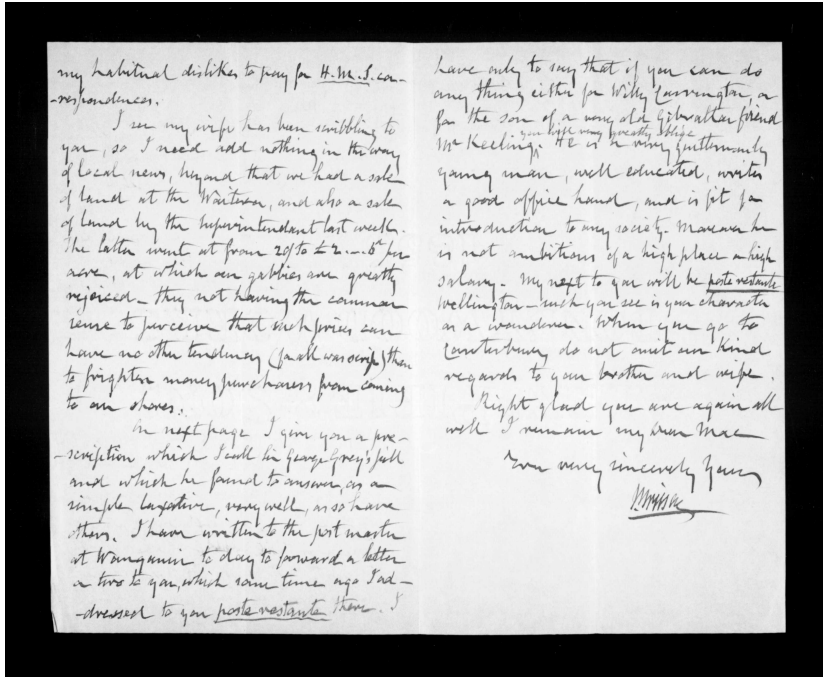 my habitual dislikes to pay for H.M.S. cor-
-respondences.
I see my wife has been scribbling to
you, so I need add nothing in the way
of local news, beyond that we had a sale
of land at the Waitera, and also a sale
of land by the Superintendant last week.
The latter went at from 20/ to £2.--.6d per
acre, at which our gabbies are greatly
rejoiced - they not having the common
sense to perceive that such prices can
have no other tendency (for all was scrip) than
to frighten money purchasers from coming
to our shores.
On next page I give you a pre-
-scription which I call Sir George Grey's pill
and which he found to answer, as a
simple laxative, very well, as so have
others. I have written to the post master
at Wanganui to day to forward a letter
or two to you, which some time ago I ad-
-dressed to you poste restante there. I
have only to say that if you can do
any thing either for Willy Carrington, or
for the son of a very old Gibraltar friend
you will very greatly oblige
Mr Keeling. He is a very gentlemanly
young man, well educated, writes
a good office hand, and is fit for
introduction to any society. Moreover he
is not ambitious of a high place or high
salary. My next to you will be poste restante
Wellington - such you see is your character
as a wanderer. When you go to
Canterbury do not omit our kind
regards to your brother and wife.
Right glad you are again all
well I remain my dear Mac
Ever very sincerely Yours